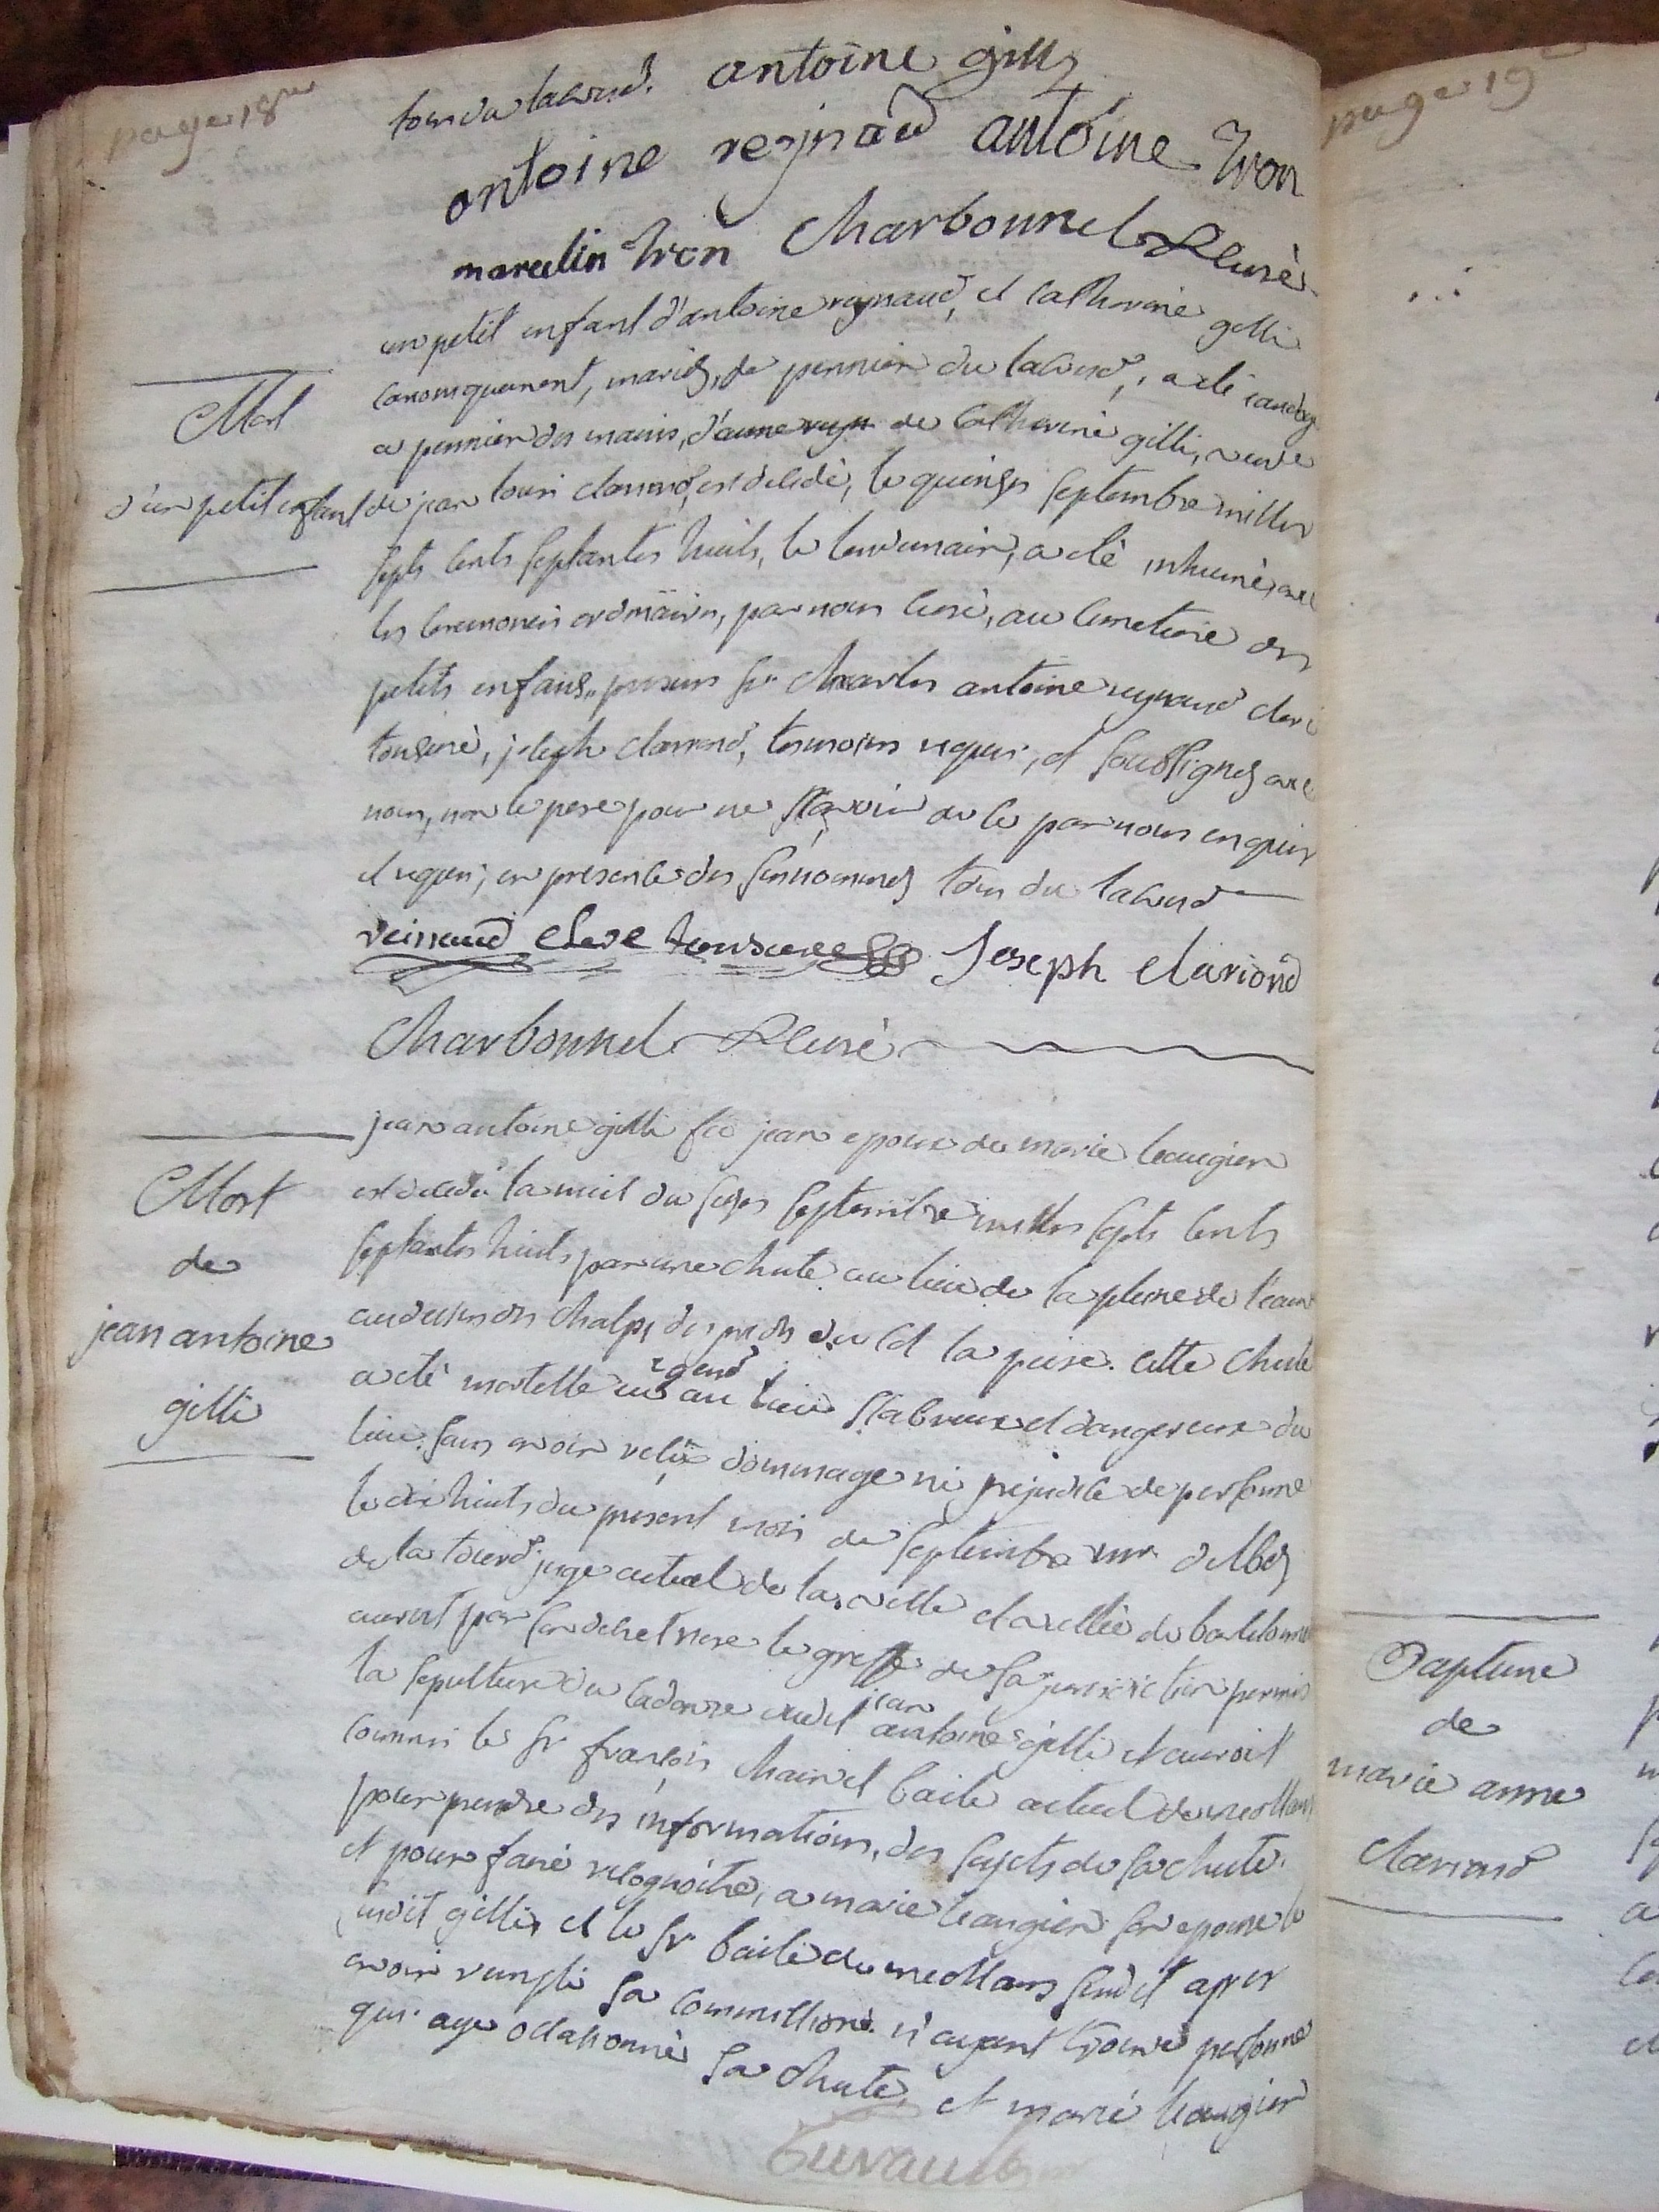 page 18me
tous du laverd. antoine gilly
antoine rejnaud antoine Tron
marcelin tron Charbonnel Curé
un petit enfant d'antoine reynaud, et Catherine gilli
canoniquement, mariés, de du laverd, a été
a des mains, de Catherine gilli, veuve
de jean louis clariond, est decedé, le quinze septembre mille
sept cents septante huit, le lendemain, a été inhumé, avec
les ceremonies ordinaires, par nous curé, au cimetiere des
petits enfans, presens sr. Charles antoine reynaud clerc
tonsuré, joseph clariond, temoins requis, et soussignés avec
nous, non le pere pour ne sçavoir de ce par nous enquis
et requis, en presence des susnommés tous du laverd
reinaud clerc tonsure Joseph clariond
Charbonnel Curé
Mort
d'un petit enfant
jean antoine gilli feu jean epoux de marie leaugier
est decedé la nuit du seize septembre mille sept cents
septante huit, par une chute au lieu de la pleine de l'eau
au dessus des Chalps des du col la peire. cette chute
a été mortelle eu egard au lieu scabreux et dangereux du
lieu. sans avoir dommage ni prejudice de personne
le dix huit, du present mois de septembre mr. d'
de la tour juge actuel de la ville et vallée de barcelonne
auroit par son decret riere le greffe de sa jurisdiction permis
la sepulture du cadavre dudit jean antoine gilli et auroit
commis le sr françois baile actuel de meollans
pour prendre des informations, des sujets de sa chute.
et pour faire recognoitre, a marie leaugier son epouse le
sudit gilli, et le sr. baile de meollans sudit apres
avoir rempli sa commission n'ayant trouvé personne
qui aye occasionné sa chute, et marie leaugier
Mort
de
jean antoine
gilli
page 19
Baptune
de
marie anne
clariond